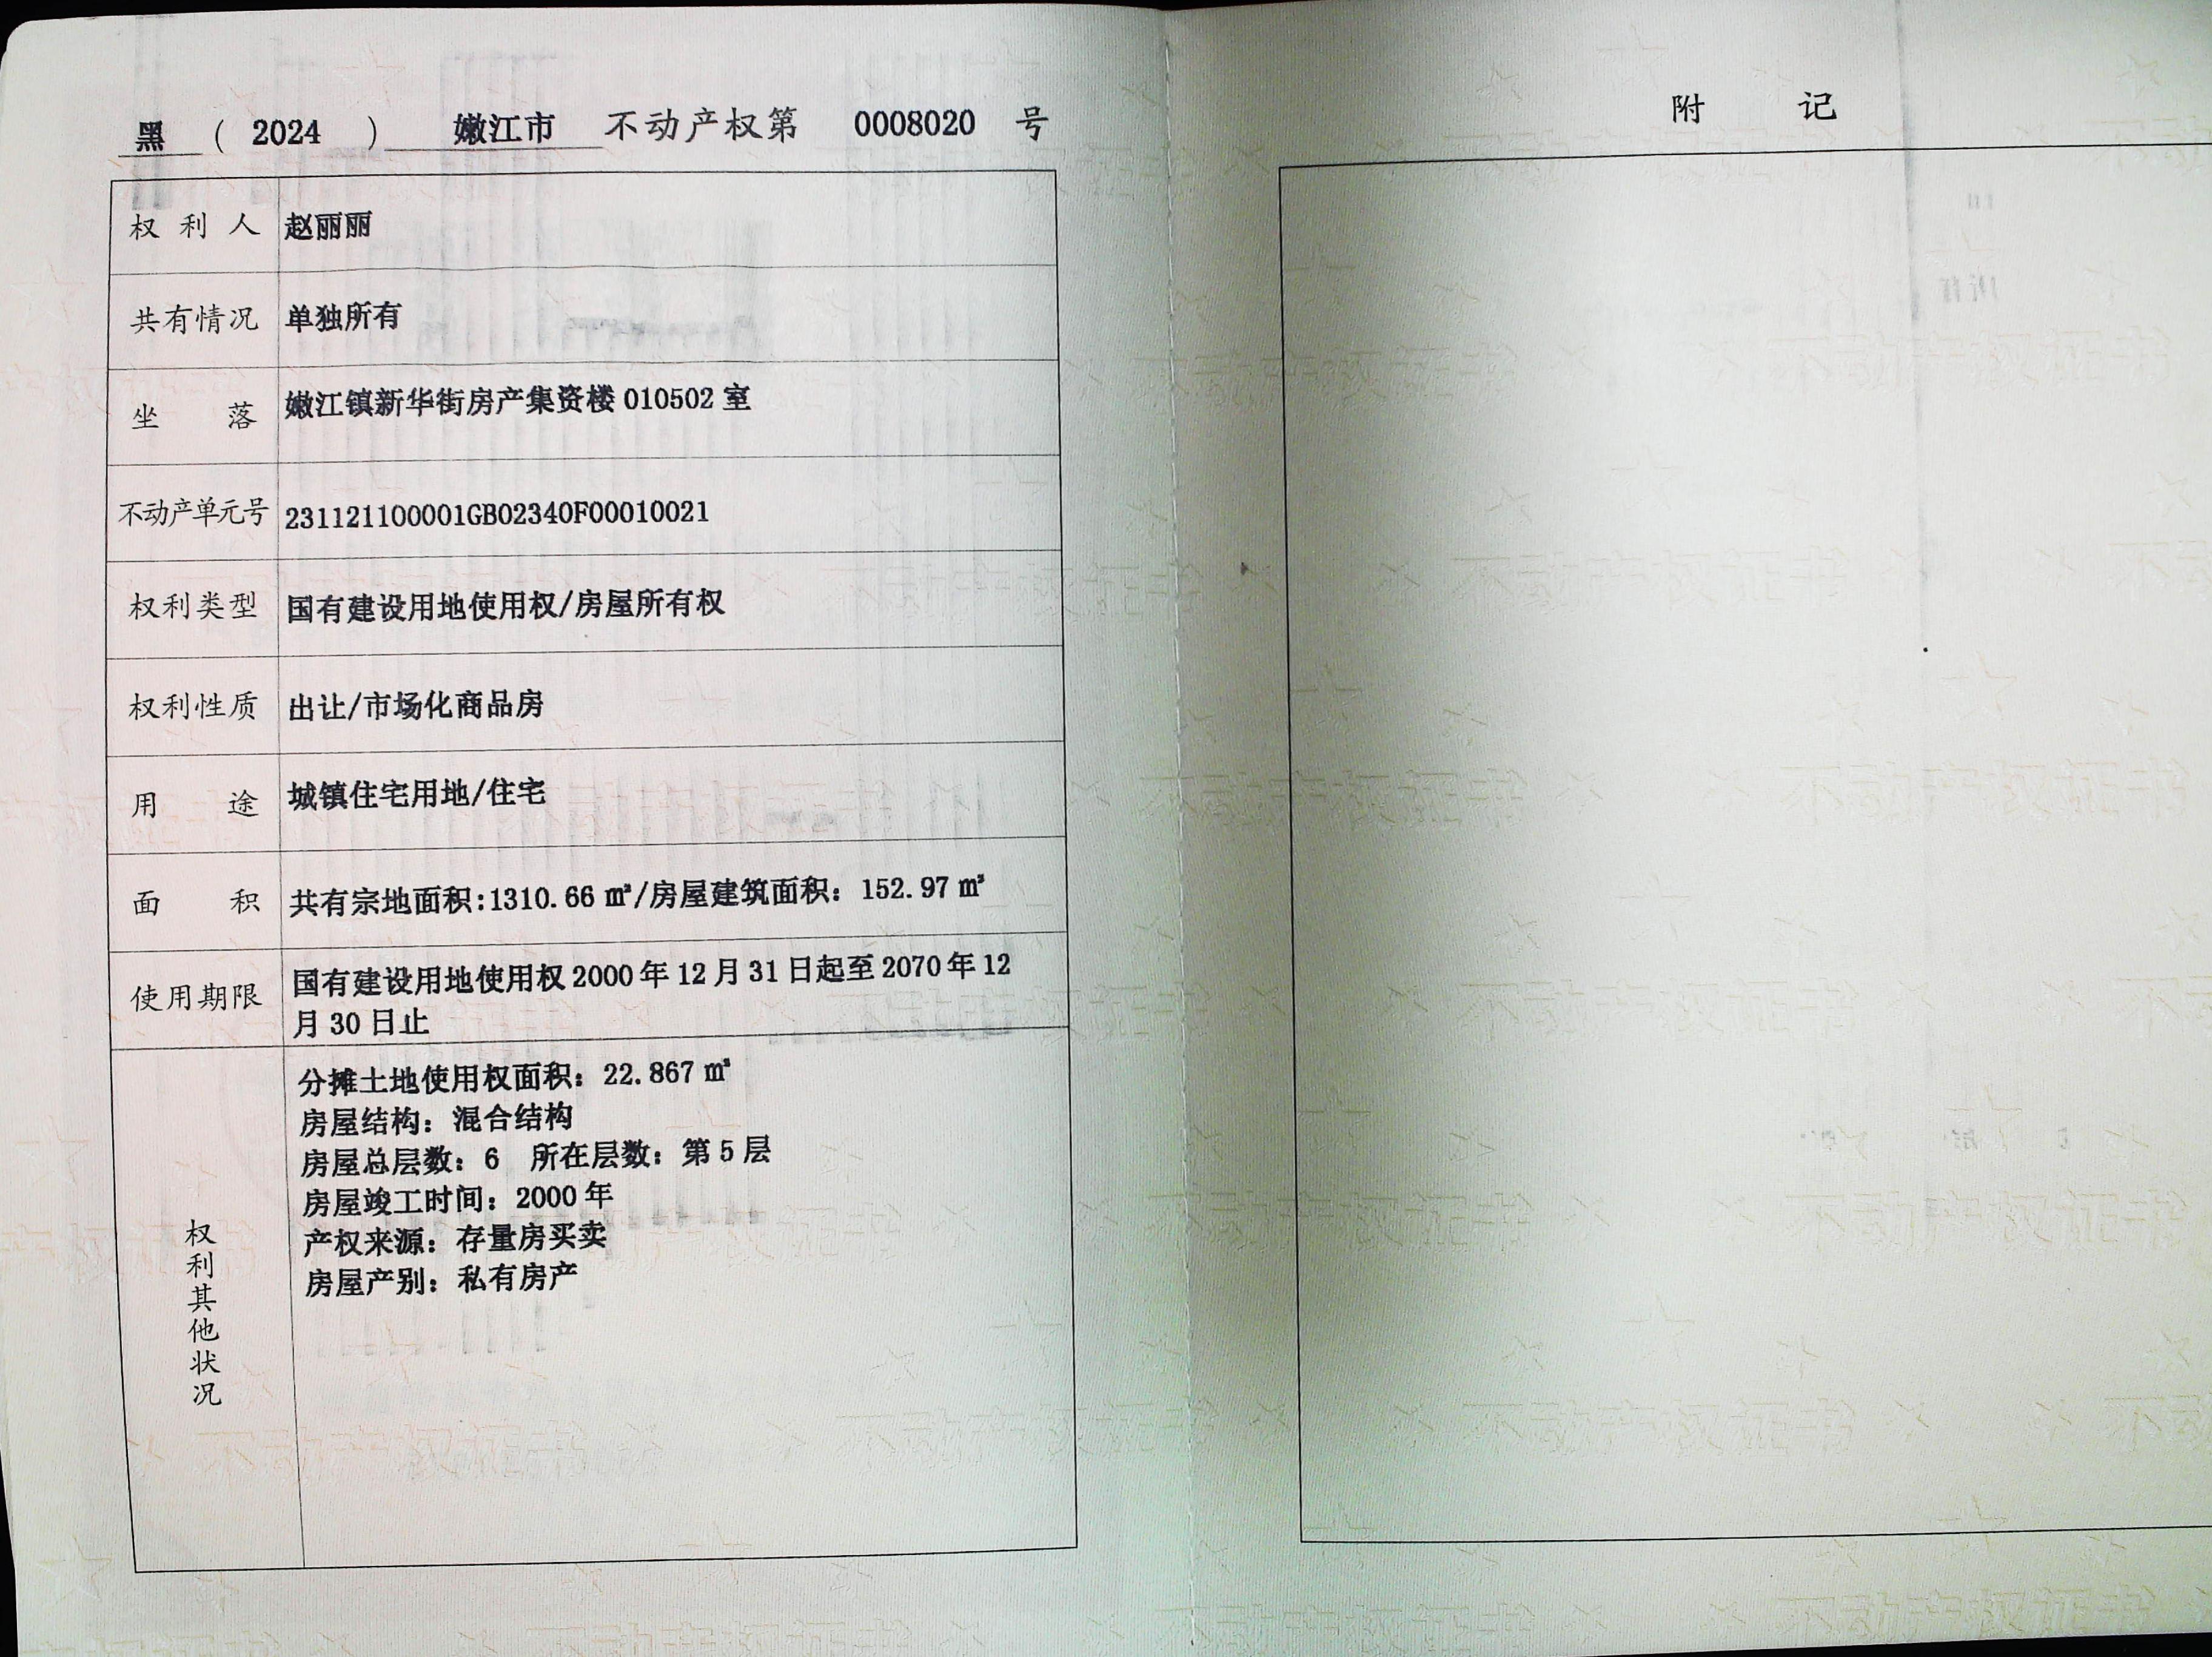 黑 ( 2024 ) 嫩江市 不动产权第 0008020 号
权利人 赵丽丽
共有情况 单独所有
坐落 嫩江镇新华街房产集资楼 010502 室
不动产单元号 231121100001GB02340F00010021
权利类型 国有建设用地使用权/房屋所有权
权利性质 出让/市场化商品房
用途 城镇住宅用地/住宅
面积 共有宗地面积:1310.66 ㎡/房屋建筑面积: 152.97 ㎡
使用期限 国有建设用地使用权 2000 年 12 月 31 日起至 2070 年 12
月 30 日止
权利其他状况
分摊土地使用权面积: 22.867 ㎡
房屋结构: 混合结构
房屋总层数: 6 所在层数: 第 5 层
房屋竣工时间: 2000 年
产权来源: 存量房买卖
房屋产别: 私有房产
附记